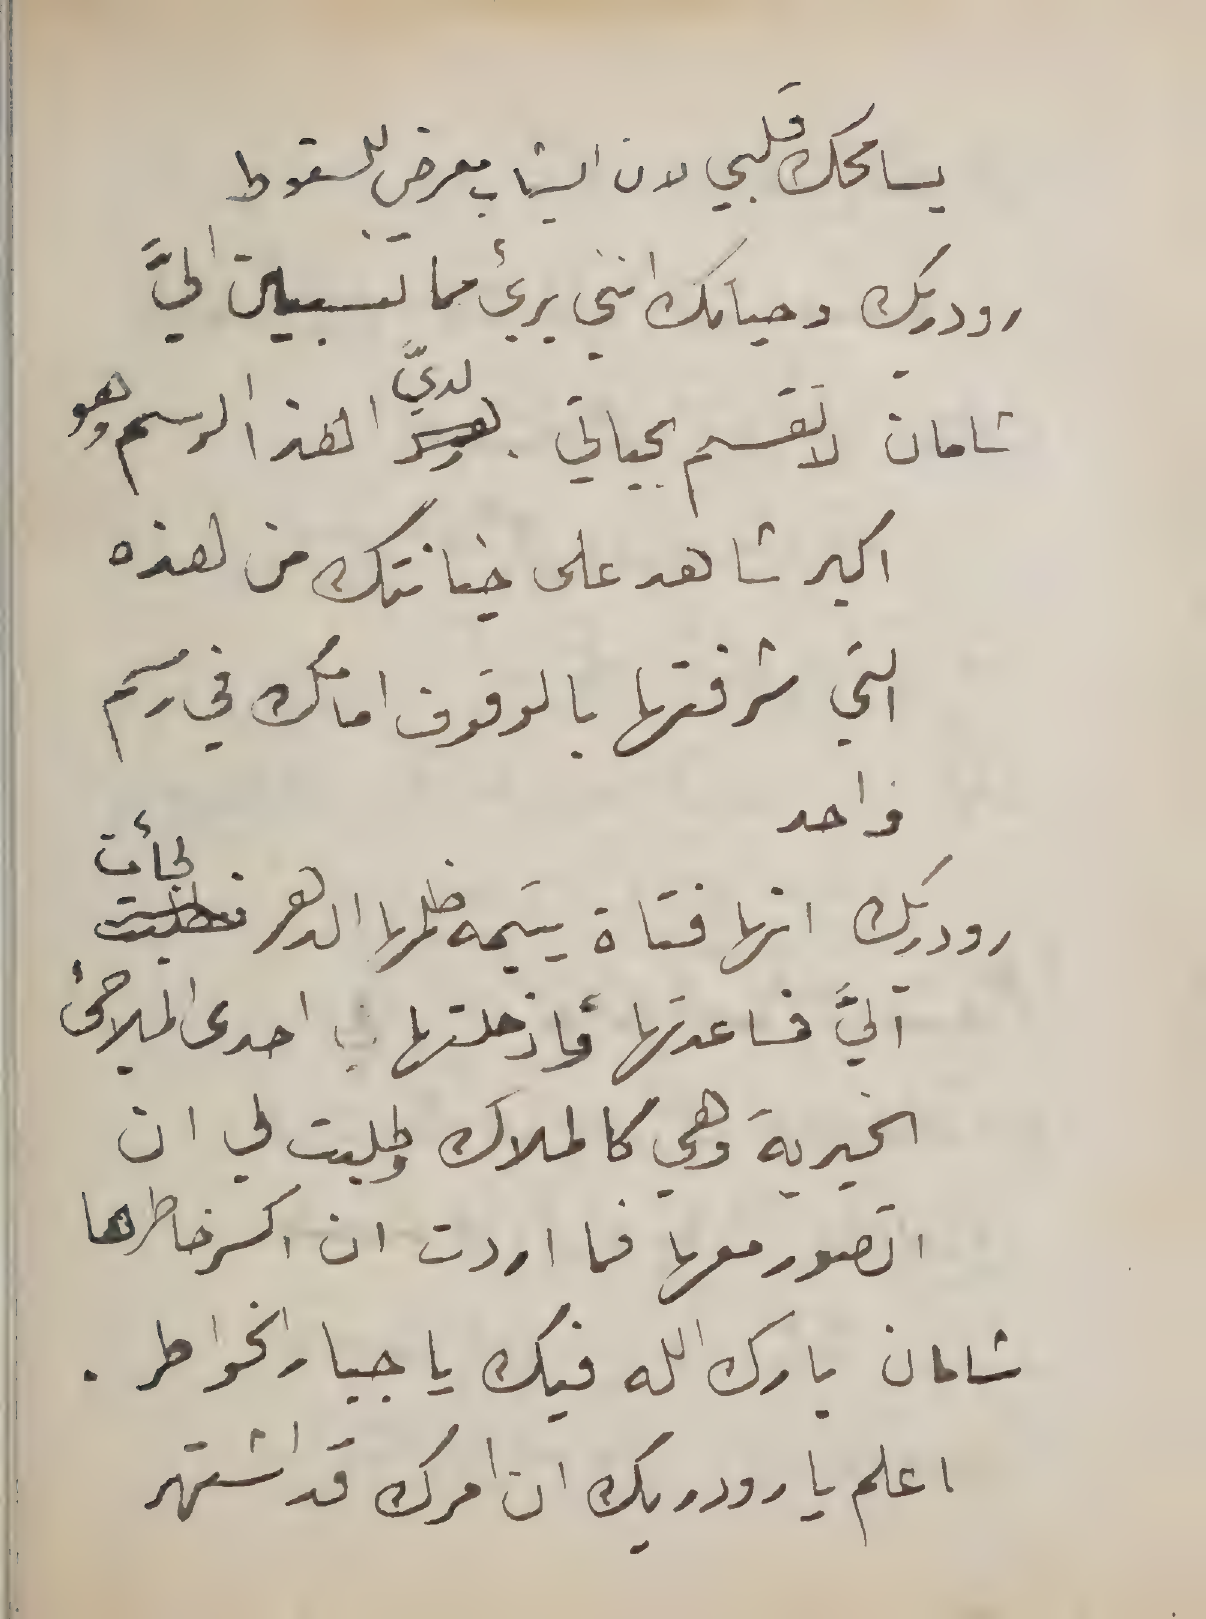 يسامحك قلبي لان الشاب معرض للسقوط
رودريك وحياتك انني بريٌ مما تنسبينه اليَّ
شامان لا تقسم بحياتي . لديَّ هذا الرسم وهو
اكبر شاهد على خيانتك من هذه
التي شرفتها بالوقوف امامك في رسم
واحد
رودريك انها فتاة يتيمه ظلمها الدهر لجأت
اليَّ فساعدتها فادخلتها احدى الملاجئ
الخيرية وهي كالملاك وطلبت لي ان
اتصور معها فما اردت ان اكسر خاطرها
شامان بارك الله فيك يا جبار الخواطر .
اعلم يا رودريك ان امرك قد اشتهر